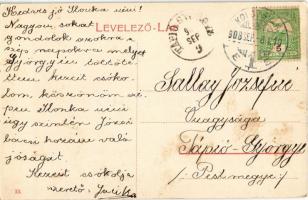 Kedves jó Ilonka néni!
Nagyon sokat
gondolok azokra a
szép napokra melyet
Györgyén töltöt-
tem kezeit csóko-
lom köszönöm szé-
pen Ilonka néni
úgy szintén Józsi
bácsi hozzám való
jóságát.
Kezeit csókolja
szerető: Juliska
LEVELEZŐ-LAP
TÁPIÓ
SEP
9
908 SEP
Sallay Józsefné
Őnagysága
Tápió-Györgye
/: Pest megye :/